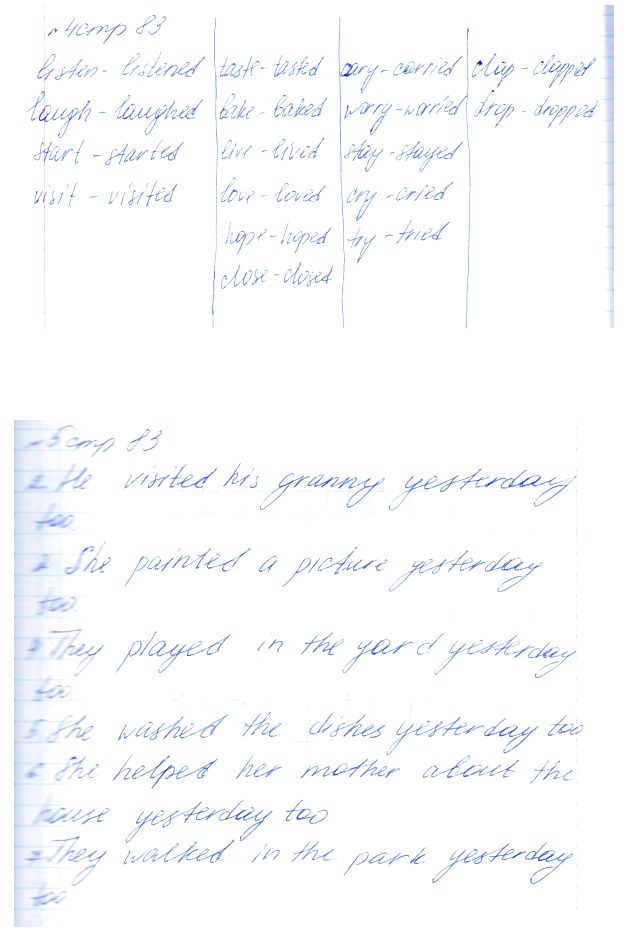 ~4 стр 83
listen - listened taste - tasted cary - carried clap - clapped
laugh - laughed bake - baked worry - worried drop - dropped
start - started live - lived stay - stayed
visit - visited love - loved cry - cried
hope - hoped try - tried
close - closed
~5 стр 83
2 He visited his granny yesterday
too
She painted a picture yesterday
too
They played in the yard yesterday
too
5 She washed the dishes yesterday too
6 She helped her mother about the
house yesterday too
They walked in the park yesterday
too